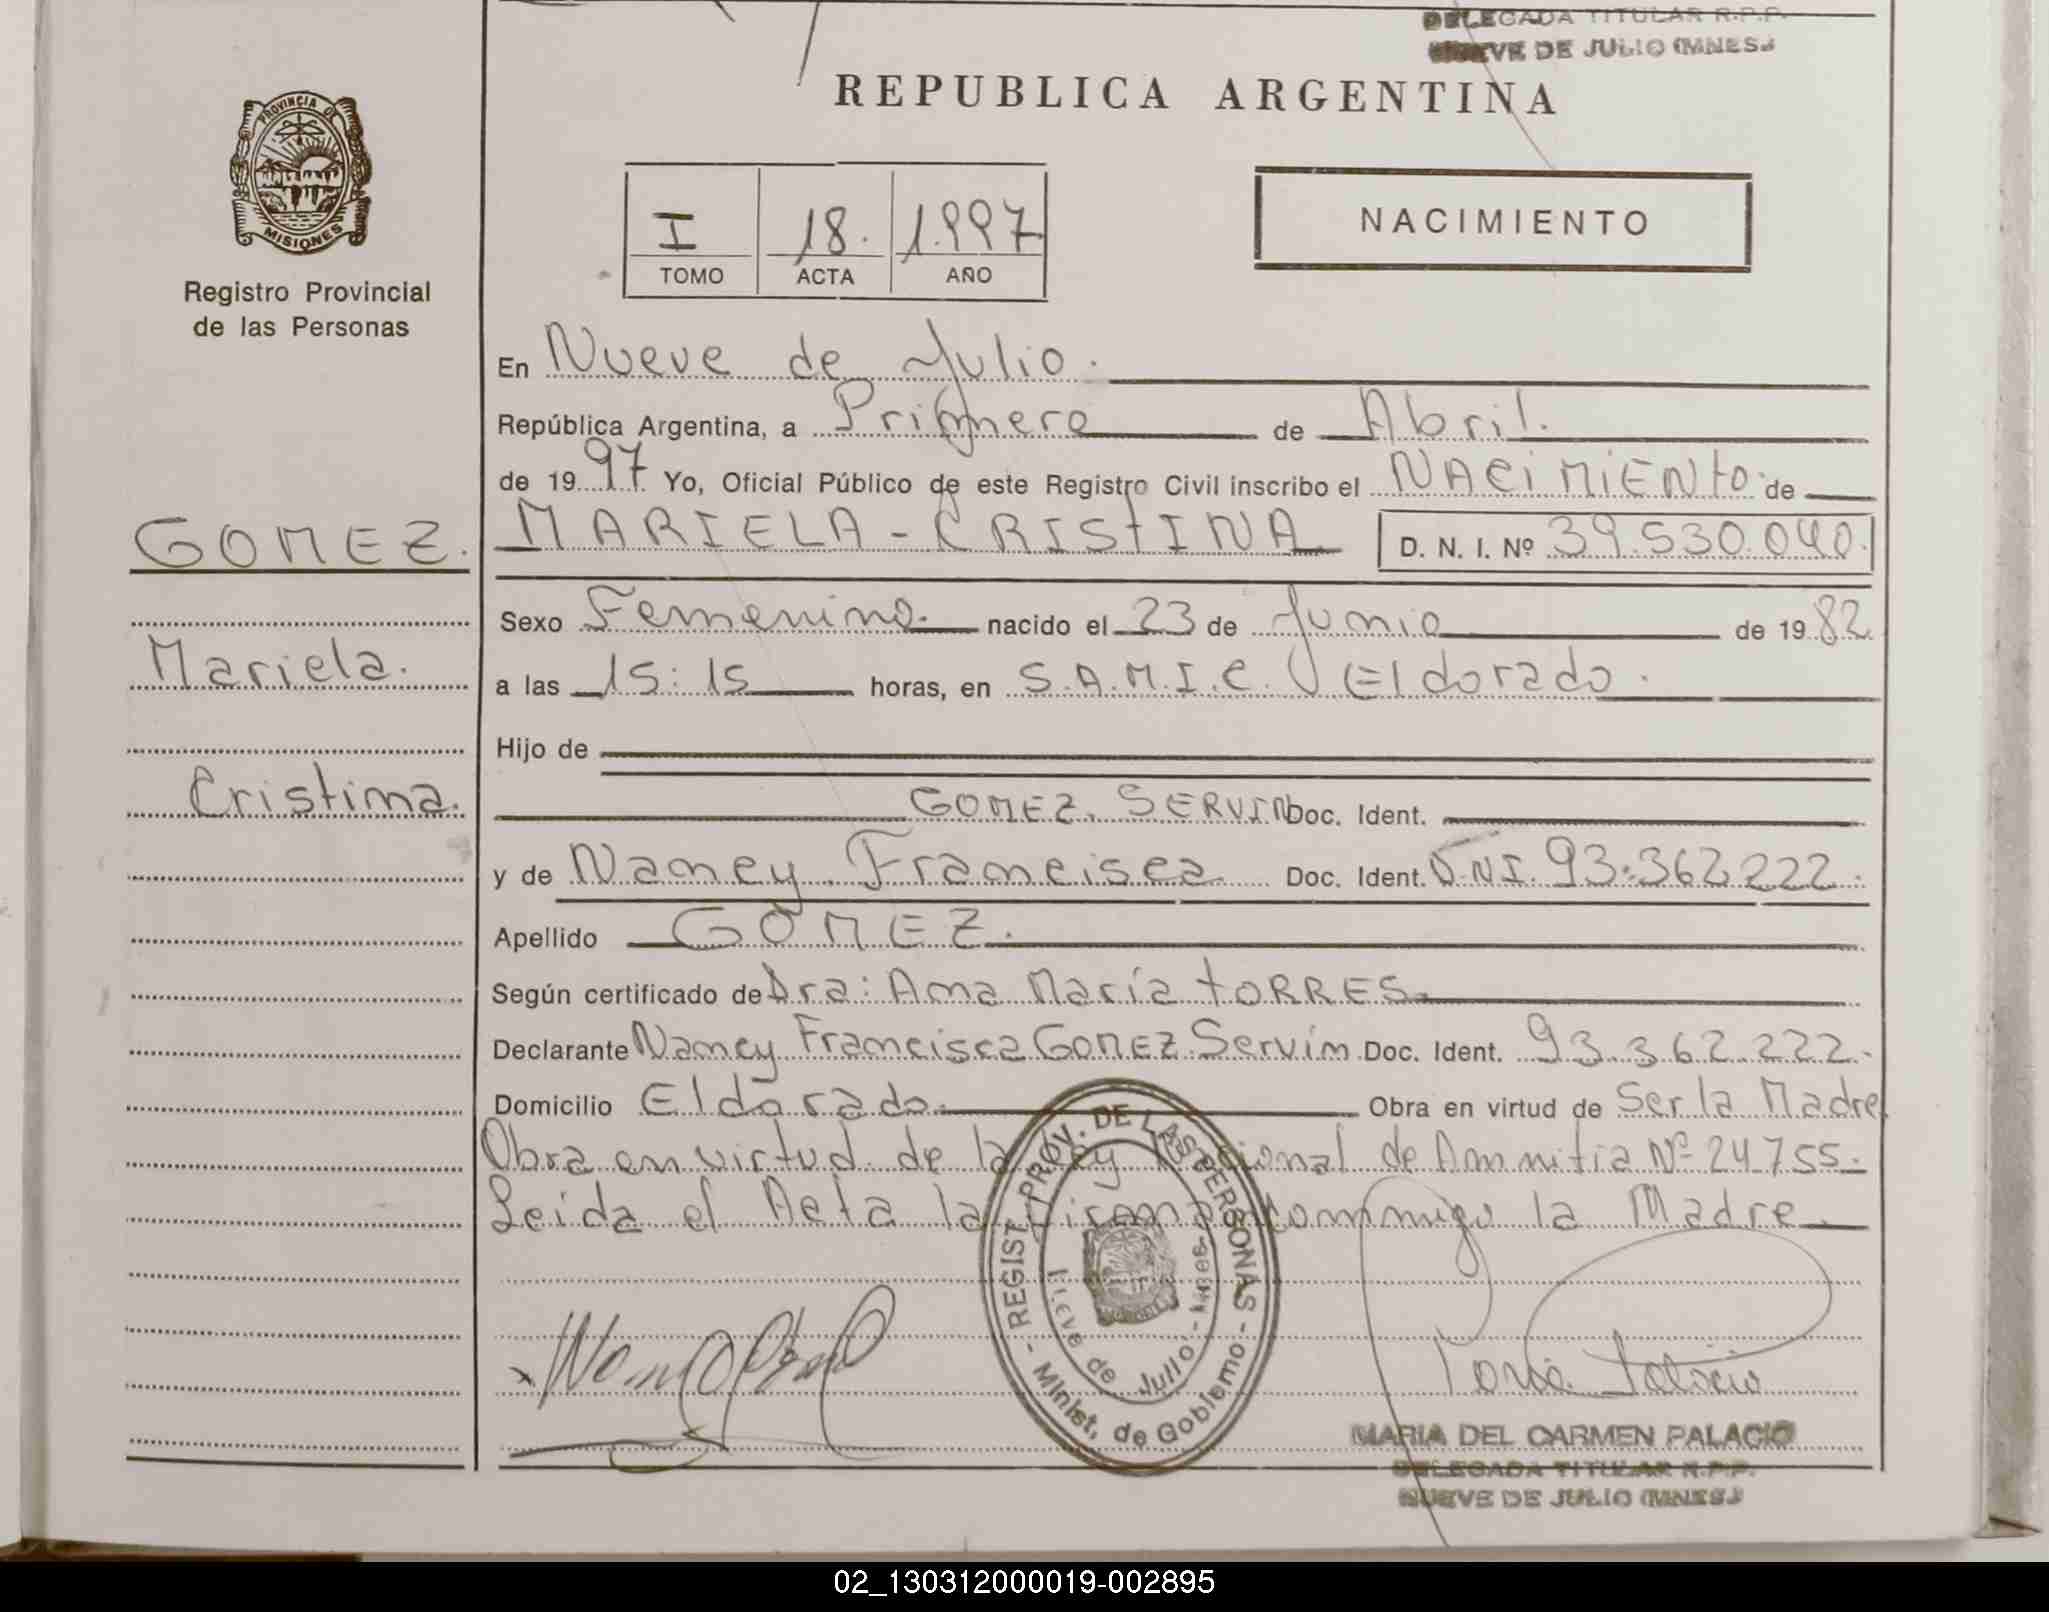 DELEGADA TITULAR R.P.P.
NUEVE DE JULIO (MNES.)
REPUBLICA ARGENTINA
PROVINCIA DE
MISIONES
Registro Provincial
de las Personas
I 18. 1.997
TOMO ACTA AÑO
NACIMIENTO
En Nueve de Julio.
República Argentina, a Primero de Abril.
de 1997 Yo, Oficial Público de este Registro Civil inscribo el NACIMIENTO de
GOMEZ.
MARIELA - CRISTINA D. N. I. Nº 39.530.040.
Sexo Femenino. nacido el 23 de Junio de 1982.
Mariela.
a las 15:15 horas, en S.A.M.I.C. Eldorado.
Hijo de
Cristina.
GOMEZ. SERVIN Doc. Ident.
y de Nancy Francisca Doc. Ident. D.N.I. 93.362.222.
Apellido GOMEZ.
Según certificado de Dra: Ana María TORRES.
Declarante Nancy Francisca GOMEZ Servin Doc. Ident. 93.362.222.
Domicilio Eldorado. Obra en virtud de Ser la Madre
Obra en virtud de la Ley Nacional de Amnitia Nº 24.755.
Leida el Acta la Firman conmigo la Madre.
REGIST. PROV. DE LAS PERSONAS - Minist. de Gobierno -
Nueve de Julio - Mnes.
MARIA DEL CARMEN PALACIO
DELEGADA TITULAR R.P.P.
NUEVE DE JULIO (MNES.)
02_130312000019-002895